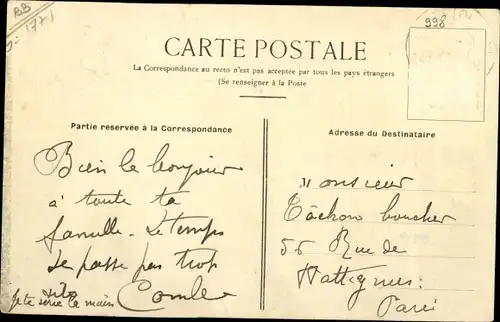 BB
1771
998
CARTE POSTALE
La Correspondance au recto n'est pas acceptée par tous les pays étrangers
(Se renseigner à la Poste
Partie réservée à la Correspondance
Adresse du Destinataire
Bien le bonjour
à toute ta
famille. Le temps
se passe pas trop
vite
Je te serre la main
Combe
Monsieur
Tâchon boucher
56 Rue de
Wattignies.
Paris